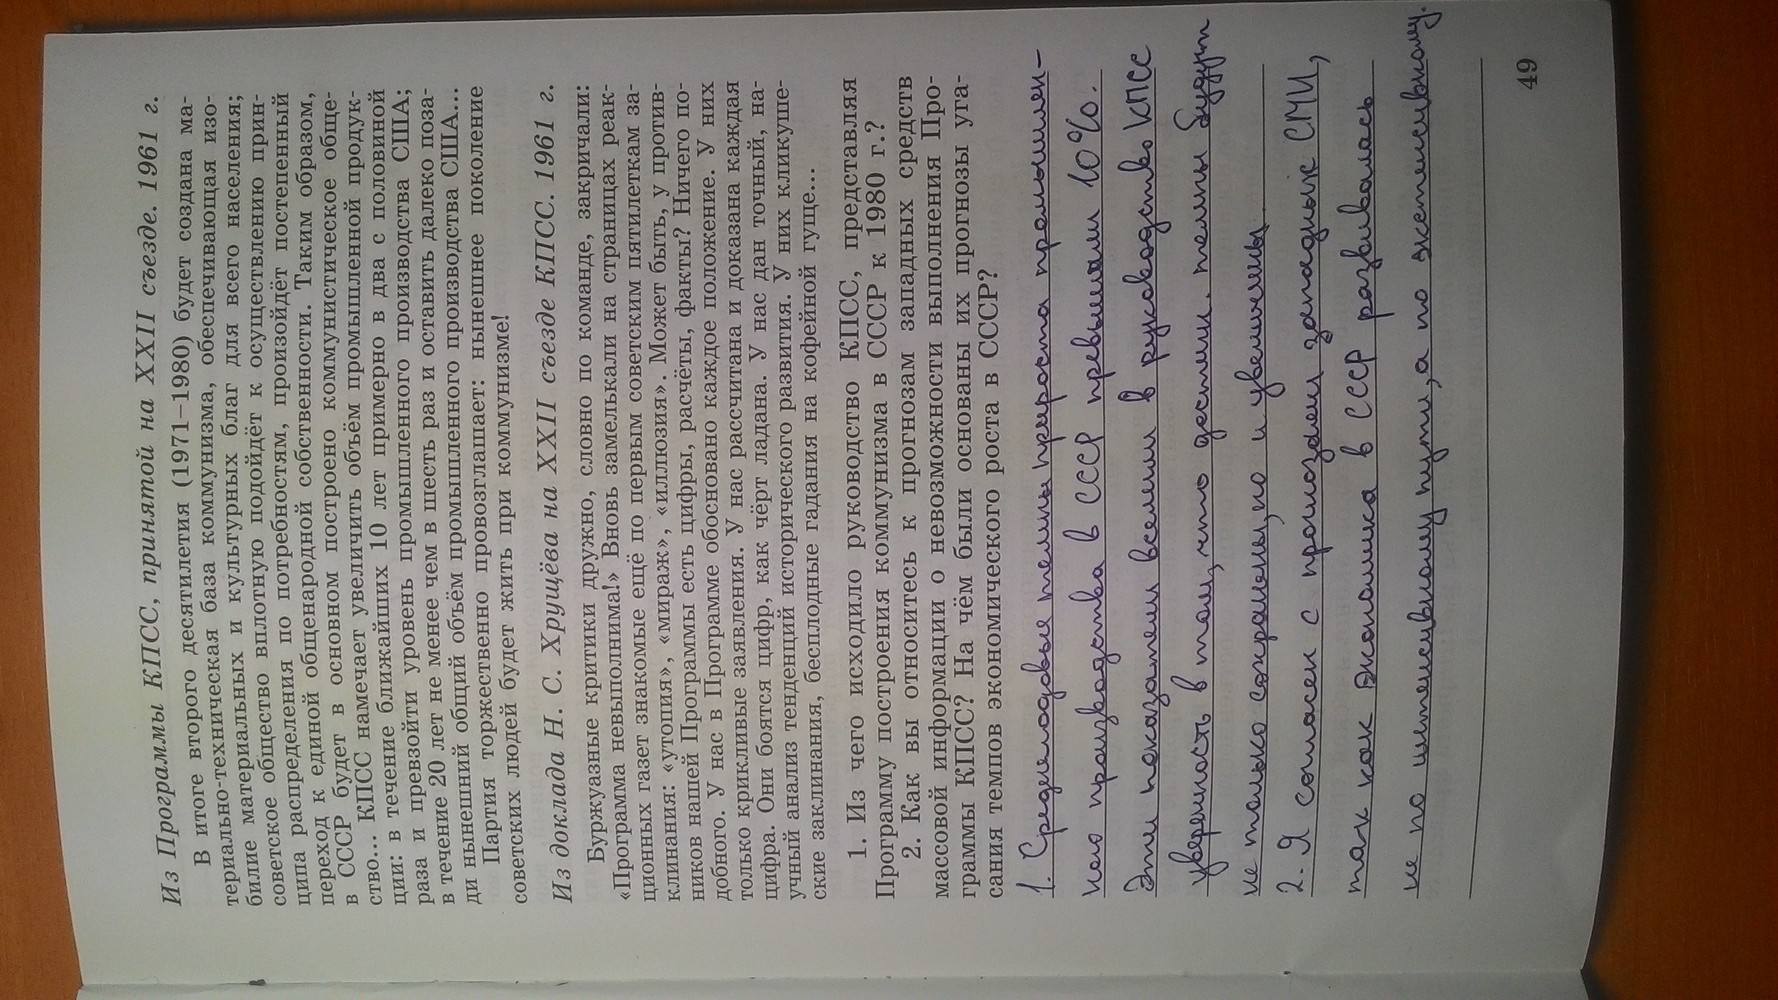 Из Программы КПСС, принятой на XXII съезде. 1961 г.
В итоге второго десятилетия (1971–1980) будет создана ма-
териально-техническая база коммунизма, обеспечивающая изо-
билие материальных и культурных благ для всего населения;
советское общество вплотную подойдёт к осуществлению прин-
ципа распределения по потребностям, произойдёт постепенный
переход к единой общенародной собственности. Таким образом,
в СССР будет в основном построено коммунистическое обще-
ство... КПСС намечает увеличить объём промышленной продук-
ции: в течение ближайших 10 лет примерно в два с половиной
раза и превзойти уровень промышленного производства США;
в течение 20 лет не менее чем в шесть раз и оставить далеко поза-
ди нынешний общий объём промышленного производства США...
Партия торжественно провозглашает: нынешнее поколение
советских людей будет жить при коммунизме!
Из доклада Н. С. Хрущёва на XXII съезде КПСС. 1961 г.
Буржуазные критики дружно, словно по команде, закричали:
«Программа невыполнима!» Вновь замелькали на страницах реак-
ционных газет знакомые ещё по первым советским пятилеткам за-
клинания: «утопия», «мираж», «иллюзия». Может быть, у против-
ников нашей Программы есть цифры, расчёты, факты? Ничего по-
добного. У нас в Программе обосновано каждое положение. У них
только крикливые заявления. У нас рассчитана и доказана каждая
цифра. Они боятся цифр, как чёрт ладана. У нас дан точный, на-
учный анализ тенденций исторического развития. У них кликуше-
ские заклинания, бесплодные гадания на кофейной гуще...
1. Из чего исходило руководство КПСС, представляя
Программу построения коммунизма в СССР к 1980 г.?
2. Как вы относитесь к прогнозам западных средств
массовой информации о невозможности выполнения Про-
граммы КПСС? На чём были основаны их прогнозы уга-
сания темпов экономического роста в СССР?
1. Среднегодовые темпы прироста промышлен-
ного производства в СССР превышали 10%.
Эти показатели вселяли в руководство КПСС
уверенность в том, что достигн. темпы будут
не только сохранены, но и увеличены.
2. Я согласен с прогнозами западных СМИ,
так как экономика в СССР развивалась
не по интенсивному пути, а по экстенсивному.
49